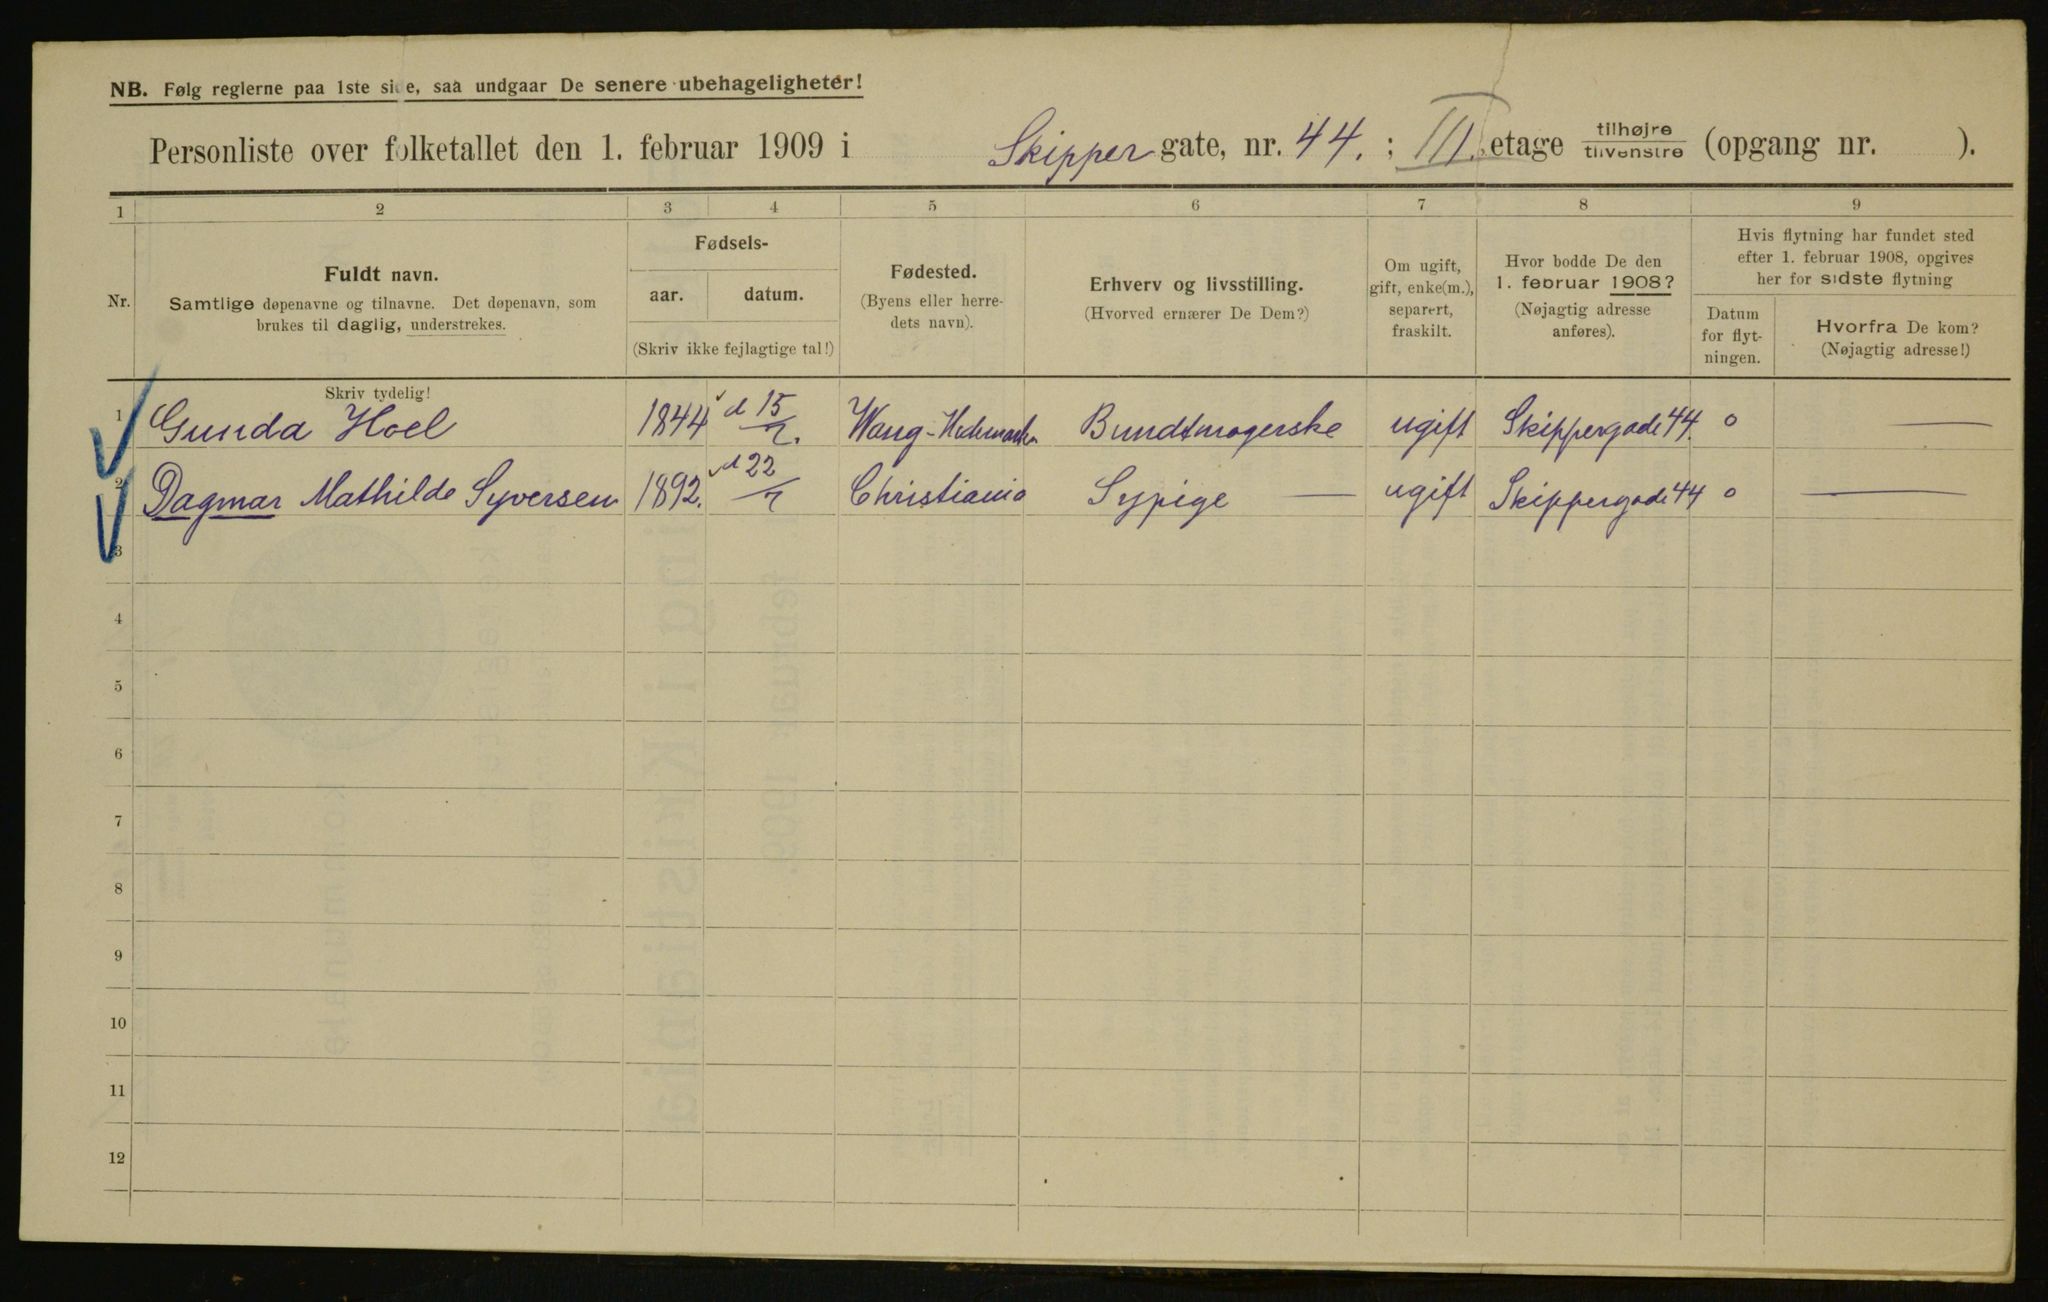 NB. Følg reglerne paa 1ste side, saa undgaar De senere ubehageligheter!
Personliste over folketallet den 1. februar 1909 i Skipper gate, nr. 44. ; III. etage tilhøjre tilvenstre (opgang nr. ).
1 2 3 4 5 6 7 8 9
Nr.
Fuldt navn.
Samtlige døpenavne og tilnavne. Det døpenavn, som
brukes til daglig, understrekes.
Fødsels-
aar. datum.
(Skriv ikke fejlagtige tal!)
Fødested.
(Byens eller herre-
dets navn).
Erhverv og livsstilling.
(Hvorved ernærer De Dem?)
Om ugift,
gift, enke(m.),
separert,
fraskilt.
Hvor bodde De den
1. februar 1908?
(Nøjagtig adresse
anføres).
Hvis flytning har fundet sted
efter 1. februar 1908, opgives
her for sidste flytning
Datum
for flyt-
ningen.
Hvorfra De kom?
(Nøjagtig adresse!)
Skriv tydelig!
1 Gunda Hoel 1844 d 15/7. Wang-Hedemarken Bundtmagerske ugift Skippergade 44. o —
2 Dagmar Mathilde Syversen 1892. d 22/7 Christiania Sypige — ugift Skippergade 44 o —
3
4
5
6
7
8
9
10
11
12